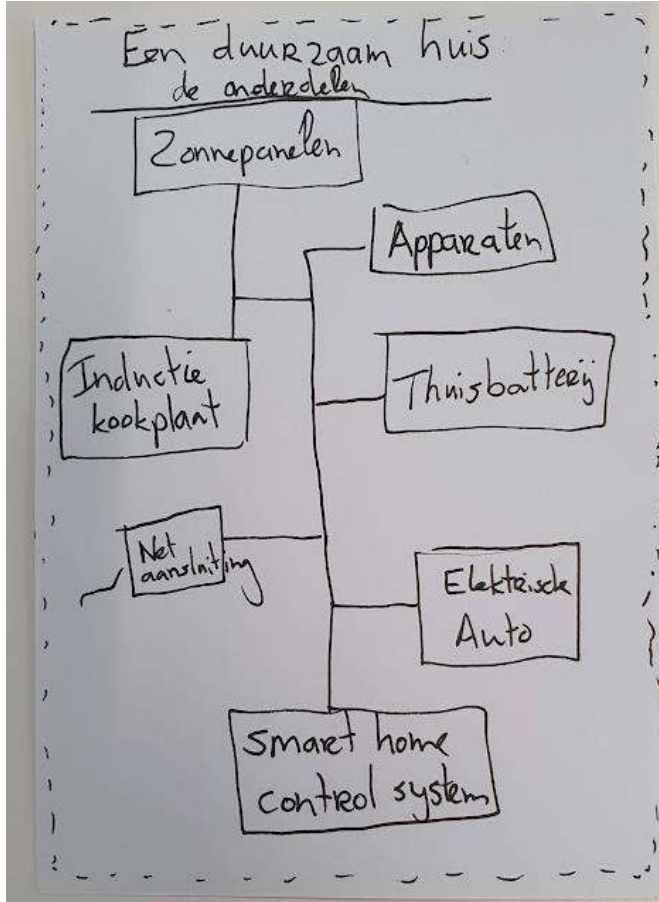 Een duurzaam huis
de onderdelen
Zonnepanelen
Apparaten
Inductie
kookplaat
Thuisbatterij
Net
aansluiting
Elektrische
Auto
Smart home
control system